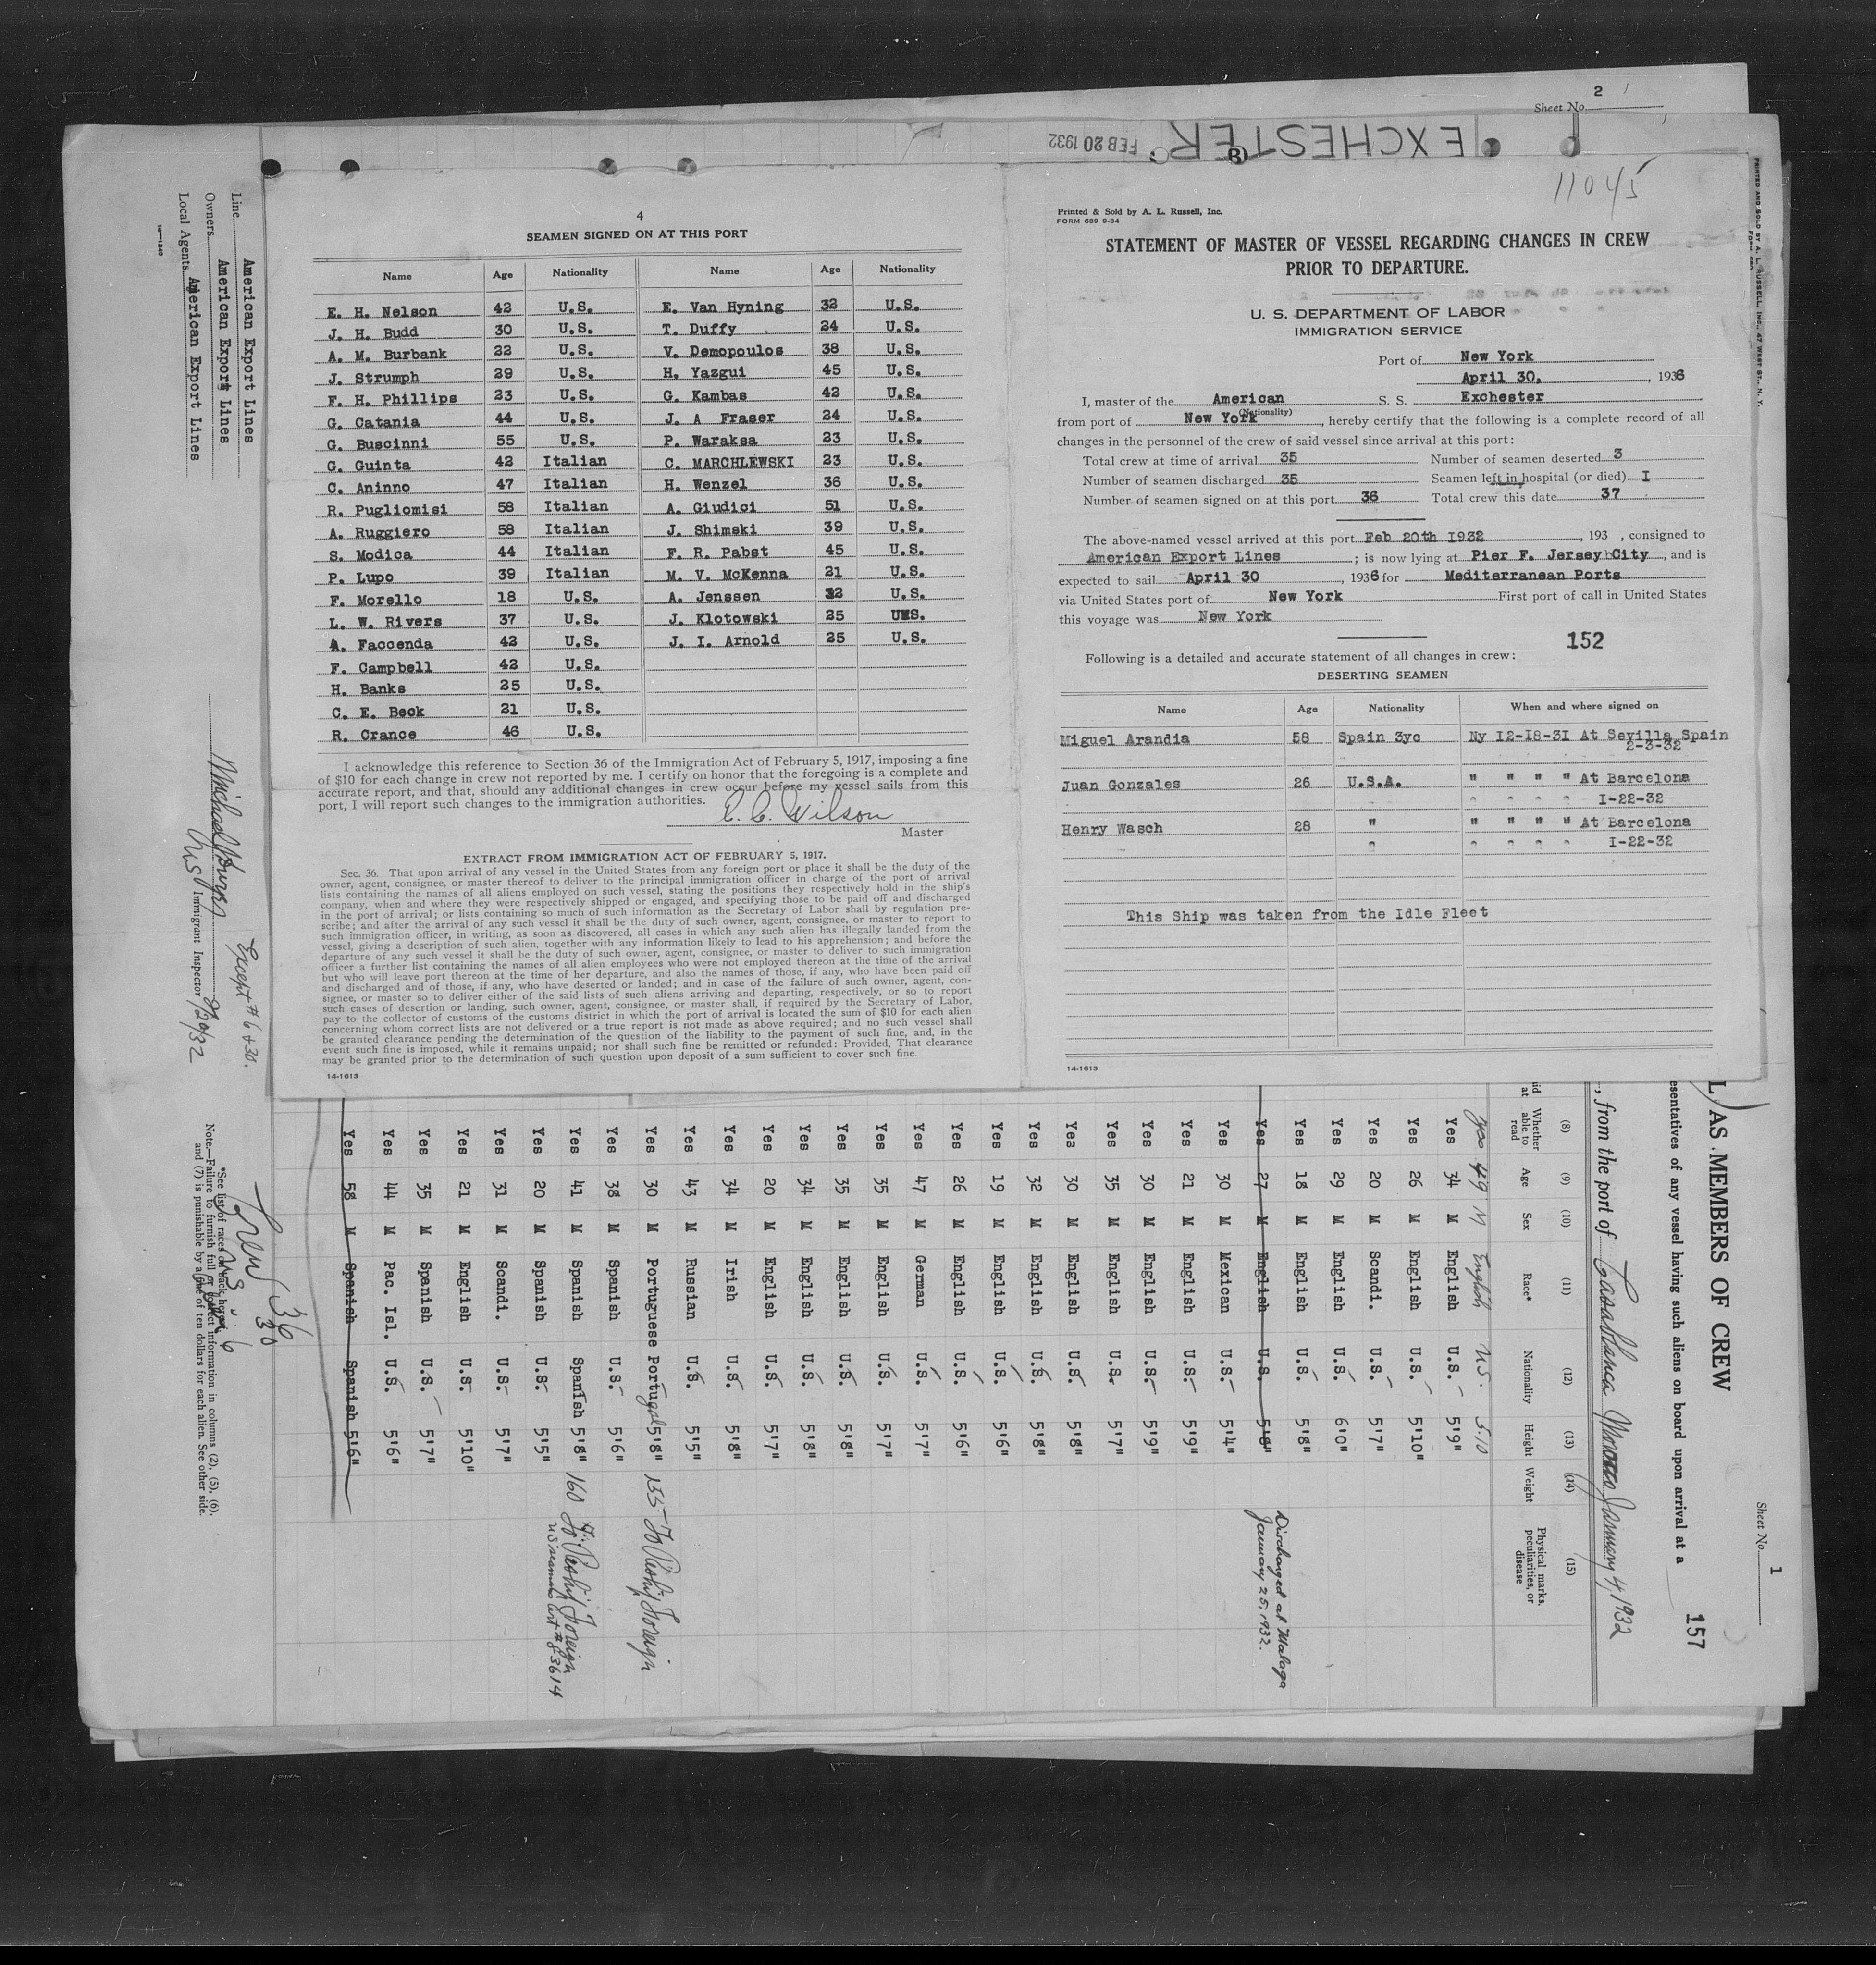 Sheet No. 2
EXCHESTER FEB 20 1932
Line American Export Lines
Owners American Export Lines
Local Agents American Export Lines
14-1240
4
SEAMEN SIGNED ON AT THIS PORT
Name Age Nationality Name Age Nationality
E. H. Nelson 42 U.S. E. Van Hyning 32 U.S.
J. H. Budd 30 U.S. T. Duffy 24 U.S.
A. M. Burbank 22 U.S. V. Demopoulos 38 U.S.
J. Strumph 29 U.S. H. Yazgui 45 U.S.
F. H. Phillips 23 U.S. G. Kambas 42 U.S.
G. Catania 44 U.S. J. A Fraser 24 U.S.
G. Buscinni 55 U.S. P. Waraksa 23 U.S.
G. Guinta 42 Italian C. MARCHLEWSKI 23 U.S.
C. Aninno 47 Italian H. Wenzel 36 U.S.
R. Pugliomisi 58 Italian A. Giudici 51 U.S.
A. Ruggiero 58 Italian J. Shimski 39 U.S.
S. Modica 44 Italian F. R. Pabst 45 U.S.
P. Lupo 39 Italian M. V. McKenna 21 U.S.
F. Morello 18 U.S. A. Jenssen 32 U.S.
L. W. Rivers 37 U.S. J. Klotowski 25 U.S.
A. Faccenda 42 U.S. J. I. Arnold 25 U.S.
F. Campbell 42 U.S.
H. Banks 25 U.S.
C. E. Beck 21 U.S.
R. Crance 46 U.S.
I acknowledge this reference to Section 36 of the Immigration Act of February 5, 1917, imposing a fine
of $10 for each change in crew not reported by me. I certify on honor that the foregoing is a complete and
accurate report, and that, should any additional changes in crew occur before my vessel sails from this
port, I will report such changes to the immigration authorities.
E. C. Wilson
Master
EXTRACT FROM IMMIGRATION ACT OF FEBRUARY 5, 1917.
Sec. 36. That upon arrival of any vessel in the United States from any foreign port or place it shall be the duty of the
owner, agent, consignee, or master thereof to deliver to the principal immigration officer in charge of the port of arrival
lists containing the names of all aliens employed on such vessel, stating the positions they respectively hold in the ship's
company, when and where they were respectively shipped or engaged, and specifying those to be paid off and discharged
in the port of arrival; or lists containing so much of such information as the Secretary of Labor shall by regulation pre-
scribe; and after the arrival of any such vessel it shall be the duty of such owner, agent, consignee, or master to report to
such immigration officer, in writing, as soon as discovered, all cases in which any such alien has illegally landed from the
vessel, giving a description of such alien, together with any information likely to lead to his apprehension; and before the
departure of any such vessel it shall be the duty of such owner, agent, consignee, or master to deliver to such immigration
officer a further list containing the names of all alien employees who were not employed thereon at the time of the arrival
but who will leave port thereon at the time of her departure, and also the names of those, if any, who have been paid off
and discharged and of those, if any, who have deserted or landed; and in case of the failure of such owner, agent, con-
signee, or master so to deliver either of the said lists of such aliens arriving and departing, respectively, or so to report
such cases of desertion or landing, such owner, agent, consignee, or master shall, if required by the Secretary of Labor,
pay to the collector of customs of the customs district in which the port of arrival is located the sum of $10 for each alien
concerning whom correct lists are not delivered or a true report is not made as above required; and no such vessel shall
be granted clearance pending the determination of the question of the liability to the payment of such fine, and, in the
event such fine is imposed, while it remains unpaid; nor shall such fine be remitted or refunded: Provided, That clearance
may be granted prior to the determination of such question upon deposit of a sum sufficient to cover such fine.
14-1613
11045
Printed & Sold by A. L. Russell, Inc.
FORM 689 9-34
STATEMENT OF MASTER OF VESSEL REGARDING CHANGES IN CREW
PRIOR TO DEPARTURE.
U. S. DEPARTMENT OF LABOR
IMMIGRATION SERVICE
Port of New York
April 30, , 1936
I, master of the American S. S. Exchester
(Nationality)
from port of New York , hereby certify that the following is a complete record of all
changes in the personnel of the crew of said vessel since arrival at this port:
Total crew at time of arrival 35 Number of seamen deserted 3
Number of seamen discharged 35 Seamen left in hospital (or died) I
Number of seamen signed on at this port 36 Total crew this date 37
The above-named vessel arrived at this port Feb 20th 1932 , 193 , consigned to
American Export Lines ; is now lying at Pier F. Jersey City , and is
expected to sail April 30 , 1936 for Mediterranean Ports
via United States port of New York First port of call in United States
this voyage was New York
152
Following is a detailed and accurate statement of all changes in crew:
DESERTING SEAMEN
Name Age Nationality When and where signed on
Miguel Arandia 58 Spain 3yc Ny 12-18-31 At Sevilla Spain
2-3-32
Juan Gonzales 26 U.S.A. " " " " At Barcelona
I-22-32
Henry Wasch 28 " " " " " At Barcelona
I-22-32
This Ship was taken from the Idle Fleet
14-1613
PRINTED AND SOLD BY A. L. RUSSELL, INC., 47 WEST ST., N. Y.
Sheet No. 1
157
L) AS MEMBERS OF CREW
esentatives of any vessel having such aliens on board upon arrival at a
, from the port of Casablanca Morocco January 4, 1932
(8) (9) (10) (11) (12) (13) (14) (15)
Whether able to read Age Sex Race* Nationality Height Weight Physical marks, peculiarities, or disease
yes 49 M English U.S. 5.10
Yes 34 M English U.S. 5'9"
Yes 26 M English U.S. 5'10"
Yes 20 M Scandi. U.S. 5'7"
Yes 29 M English U.S. 6'0"
Yes 18 M English U.S. 5'8"
Yes 27 M English U.S. 5'8" Discharged at Malaga January 25, 1932.
Yes 30 M Mexican U.S. 5'4"
Yes 21 M English U.S. 5'9"
Yes 30 M English U.S. 5'9"
Yes 35 M English U.S. 5'7"
Yes 30 M English U.S. 5'8"
Yes 32 M English U.S. 5'8"
Yes 19 M English U.S. 5'6"
Yes 26 M English U.S. 5'6"
Yes 47 M German U.S. 5'7"
Yes 35 M English U.S. 5'7"
Yes 35 M English U.S. 5'8"
Yes 34 M English U.S. 5'8"
Yes 20 M English U.S. 5'7"
Yes 34 M Irish U.S. 5'8"
Yes 43 M Russian U.S. 5'5"
Yes 30 M Portuguese Portugal 5'8" 135 To Reship Foreign
Yes 38 M Spanish U.S. 5'6"
Yes 41 M Spanish Spanish 5'8" 160 To Reship Foreign
Yes 20 M Spanish U.S. 5'5"
Yes 31 M Scandi. U.S. 5'7"
Yes 21 M English U.S. 5'10"
Yes 35 M Spanish U.S. 5'7"
Yes 44 M Pac. Isl. U.S. 5'6"
Yes 58 M Spanish Spanish 5'6"
Except # 6 & 30.
Immigrant Inspector 2/20/32
Crew 36
30
6
*See list of races on back hereof.
Note.—Failure to furnish full or correct information in columns (2), (5), (6),
and (7) is punishable by a fine of ten dollars for each alien. See other side.